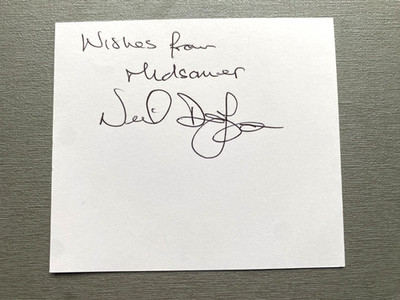 Wishes from
Midsomer
Neil